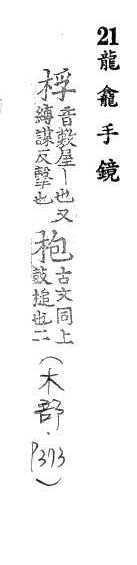 21龍龕手鏡
桴音敷屋丨也又
縛謀反擊也
枹古文同上
鼓槌也二
(木部·P373)